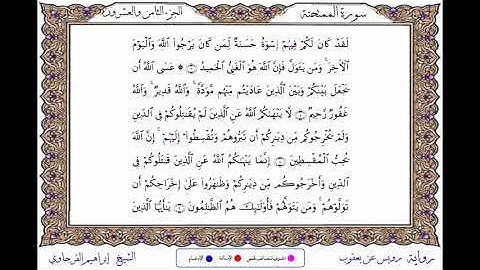 سورة الممتحنة
الجزء الثامن والعشرون
لَقَدْ كَانَ لَكُمْ فِيهِمُ إِسْوَةٌ حَسَنَةٌ لِمَن كَانَ يَرْجُوا اللَّهَ وَالْيَوْمَ
الْآخِرَ وَمَن يَتَوَلَّ فَإِنَّ اللَّهَ هُوَ الْغَنِيُّ الْحَمِيدُ ۞ عَسَى اللَّهُ أَن
يَجْعَلَ بَيْنَكُمْ وَبَيْنَ الَّذِينَ عَادَيْتُم مِنْهُم مَوَدَّةً وَاللَّهُ قَدِيرٌ وَاللَّهُ
غَفُورٌ رَحِيمٌ لَا يَنْهَىٰكُمُ اللَّهُ عَنِ الَّذِينَ لَمْ يُقَٰتِلُوكُمْ فِي الدِّينِ
وَلَمْ يُخْرِجُوكُم مِن دِيَٰرِكُمْ أَن تَبَرُّوهُمْ وَتُقْسِطُوا إِلَيْهُمْ إِنَّ اللَّهَ
يُحِبُّ الْمُقْسِطِينَ إِنَّمَا يَنْهَىٰكُمُ اللَّهُ عَنِ الَّذِينَ قَٰتَلُوكُمْ فِي
الدِّينِ وَأَخْرَجُوكُم مِن دِيَٰرِكُمْ وَظَٰهَرُوا عَلَىٰ إِخْرَاجِكُمْ أَن
تَوَلَّوْهُمْ وَمَن يَتَوَلَّهُمْ فَأُولَٰئِكَ هُمُ الظَّٰلِمُونَ يَٰأَيُّهَا الَّذِينَ
رواية رويس عن يعقوب
الشيخ إبراهيم الفرجاوي